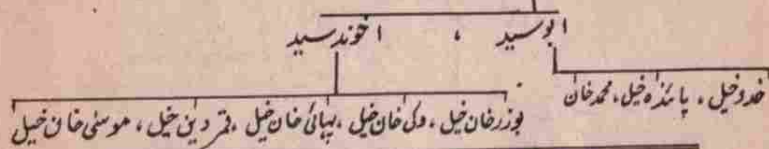 ابوسید ، اخوند سید
خدوخیل، پائندہ خیل، محمد خان
بوزرخان خیل، وکی خان خیل، پہائی خان خیل، قمر دین خیل، موسٰی خان خیل